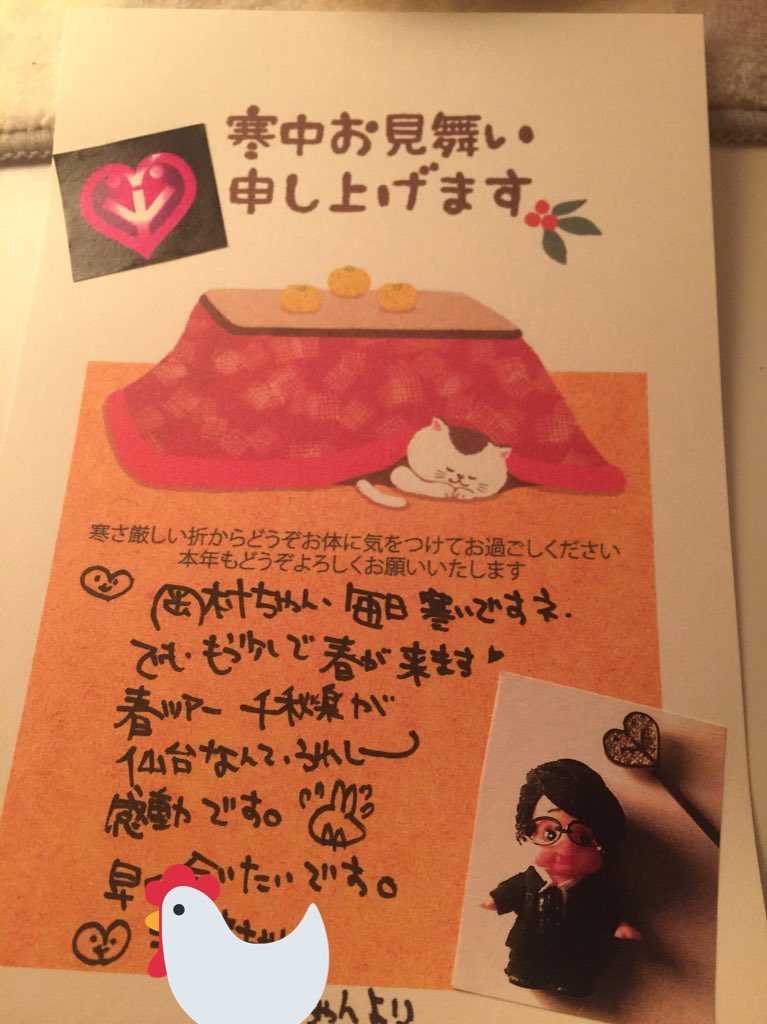 寒中お見舞い
申し上げます
寒さ厳しい折からどうぞお体に気をつけてお過ごしください
本年もどうぞよろしくお願いいたします
岡村ちゃん、毎日寒いですネ.
でも、もう少しで春が来ます
春ツアー 千秋楽が
仙台なんて、うれしー
感動です。
早 会いたいです。
ちゃんより